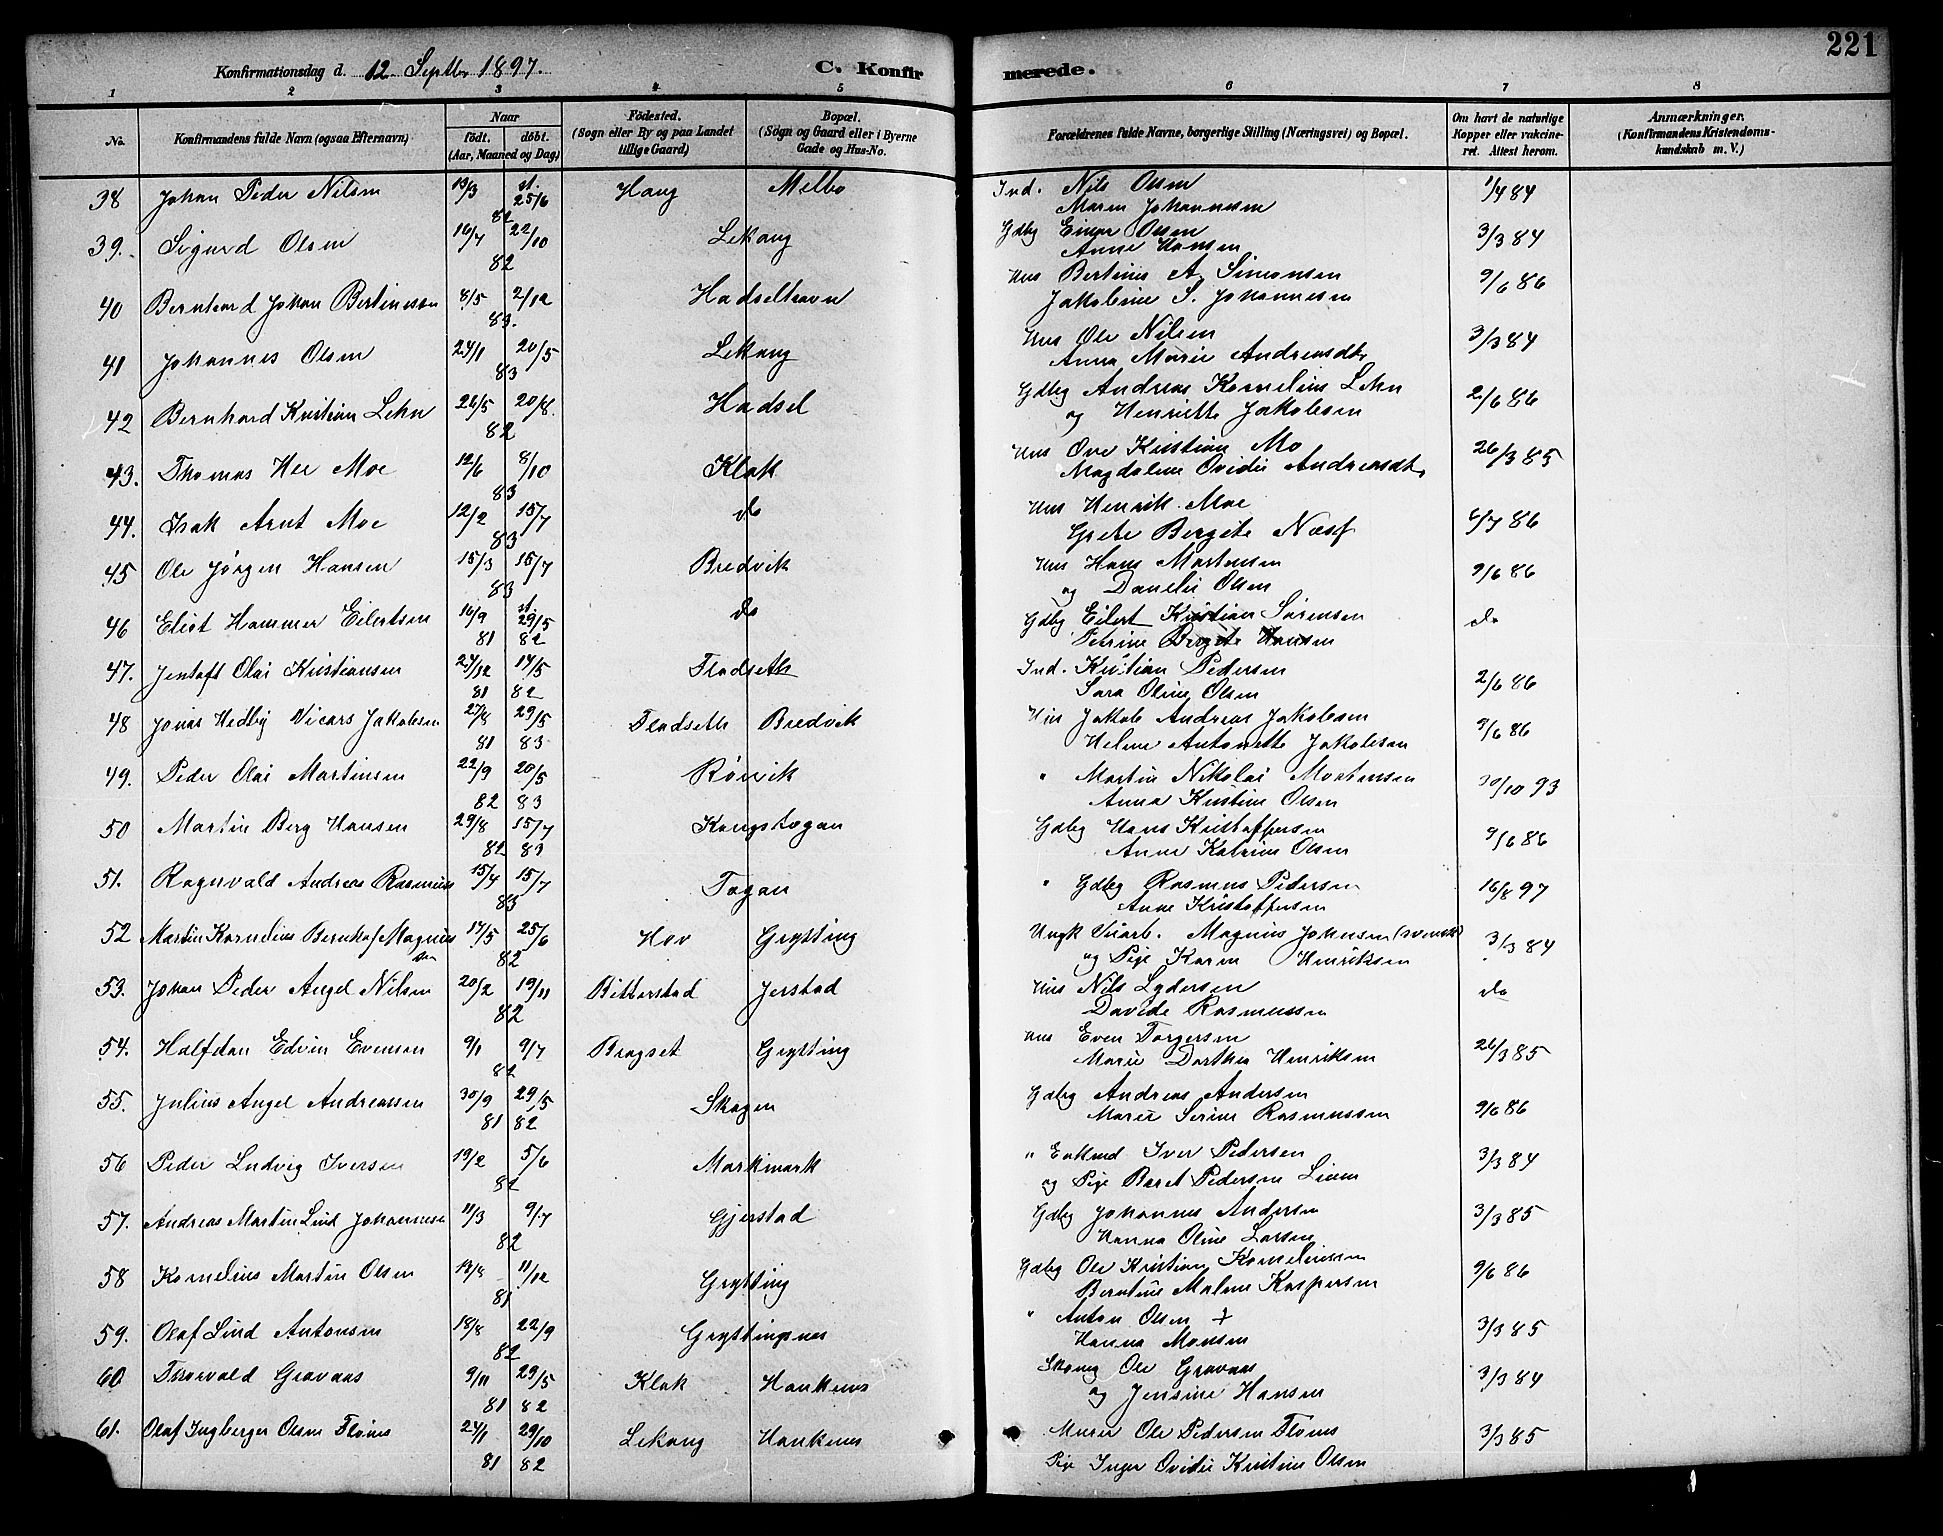 221
Konfirmationsdag d. 12 Septbr 1897. C. Konfirmerede.
1 2 3 4 5 6 7 8
No. Konfirmandens fulde Navn (ogsaa Efternavn) Naar født, døbt. (Aar, Maaned og Dag) Fødested. (Sogn eller By og paa Landet tillige Gaard) Bopæl. (Sogn og Gaard eller i Byerne Gade og Hus-No. Forældrenes fulde Navne, borgerlige Stilling (Næringsvei) og Bopæl. Om havt de naturlige Kopper eller vakcineret. Attest herom. Anmærkninger. (Konfirmandens Kristendomskundskab m. V.)
38 Johan Peder Nilsen 13/3 st. 25/6 82 Haug Melbo Ind. Nils Olsen 1/4 84
Maren Johannesen
39. Sigurd Olsen 16/7 22/10 82 Lekang Gdbg Einar Olsen 3/3 84
Anne Hansen
40 Bernhard Johan Bertinesen 8/5 2/12 83. Hadselhavn Hus Bertines A. Simonsen 9/6 86
Jakobine S. Johannesen
41 Johannes Olsen 24/1 20/5 83 Lekang Hus Ole Nilsen 3/3 84
Anna Marie Andreasdtr
42 Bernhard Kristian Lehn 26/5 20/8. 82 Hadsel Gdbg Andreas Kornelius Lehn 2/6 86
og Henriette Jakobsen
43. Thomas Her Moe 12/6 8/10 83 Klak Hus Ove Kristian Mo 26/3 85
Magdalene Ovidie Andreasdtr
44. Isak Arnt Moe 12/2 15/7 83 do Hus Henrik Moe 6/7 86
Grete Bergete Næss
45 Ole Jørgen Hansen 15/3 15/7 83 Bredvik Hus Hans Mortensen 9/6 86
og Danelie Olsen
46 Eliot Hammer Eilertsen 16/9 81 st. 29/5 82 do Gdbg Eilert Kristian Sørensen do
Petrine Bergete Hansen
47. Jentoft Olai Kristiansen 24/12 81 14/5 82 Fladseth Ind. Kristian Pedersen 2/6 86
Sara Oline Olsen
48 Jonas Hedley Vicars Jakobsen 27/8 81 29/5 83 Fladseth Bredvik Hus Jakob Andreas Jakobsen 9/6 86
Helene Antonette Jakobsen
49. Peder Olai Martinsen 22/9 82 20/5 83 Rørvik " Martin Nikolai Mortensen 30/10 93
Anna Kristine Olsen
50 Martin Berg Hansen 29/8 82 15/7 83 Kongstogan Gdbg Hans Kristoffersen 9/6 86
Anne Katrine Olsen
51. Ragnvald Andreas Rasmus 15/4 15/7 83 Togan " Gdbg Rasmus Pedersen 16/8 97
Anne Kristoffersen
52 Martin Kornelius Bernhof Magnussen 17/5 25/6 82 Hov Grytting Ungk Magnus Johnsen (svensk) 3/3 84
og Pige Karen Henriksen
53. Johan Peder Angel Nilsen 20/2 19/11 82 Bitterstad Jerstad Hus Nils Lydersen do
Davida Rasmussen
54. Halfdan Edvin Evensen 9/1 9/7 82 Bragset Grytting Hus Even Torgersen 26/3 85
Marie Dorthea Henriksen
55. Julius Angel Andreassen 30/9 81 29/5 82 Skagen Gdbg Andreas Andersen 9/6 86
Marie Serine Rasmussen
56 Peder Ludvig Iversen 19/2 5/6 82 Markmark " Enkmd Iver Pedersen 3/3 84
og Pige Beret Pedersen Liem
57. Andreas Martin Lind Johannesen 11/3 9/7 82 Gjerstad Gdbg Johannes Andersen 3/3 85
Hanna Oline Larsen
58 Kornelius Martin Olsen 13/8 11/12 81 Grytting Gdbg Ole Kristian Korneliussen 9/6 86
Berntine Malene Kaspersen
59. Olaf Lind Antonsen 18/8 22/9 82 Gryttingsnes " Anton Olsen + 3/3 85
Hanna Monsen
60 Thorvald Gravaas 9/11 81 29/5 82 Klak Haukenes Skomg Ole Gravaas 3/3 84
og Jensine Hansen
61. Olaf Ingberger Olsen Flones 24/1 81 29/10 82 Lekang Haukenes Murer Ole Pedersen Flones 3/3 85
Pige Inger Ovidie Kristine Olsen